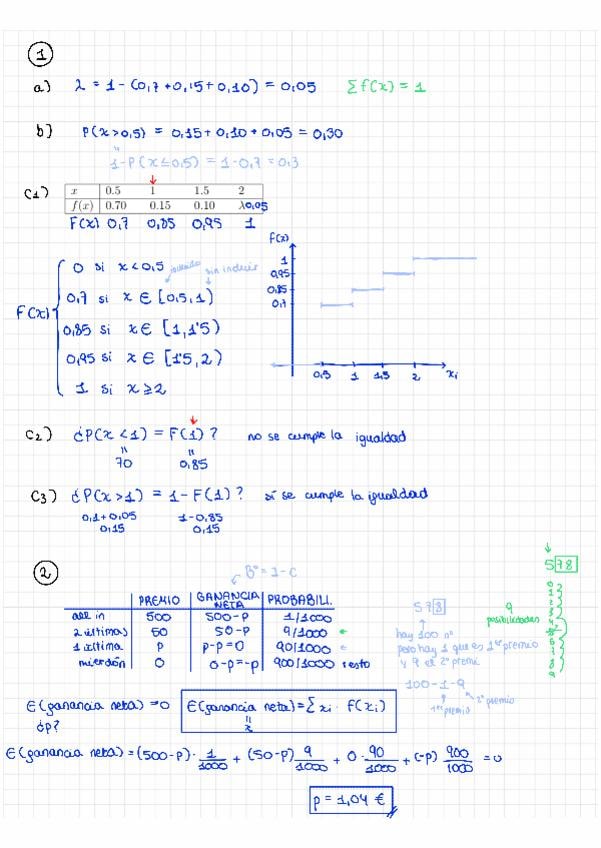 1
a) λ = 1 - (0,7 + 0,15 + 0,10) = 0,05 Σf(x) = 1
b) P(x>0,5) = 0,15 + 0,10 + 0,05 = 0,30
"
1-P(x≤0,5) = 1-0,7 = 0,3
C1) x 0.5 1 1.5 2
f(x) 0.70 0.15 0.10 λ 0,05
F(x) 0,7 0,85 0,95 1
F(x)
0 si x < 0,5 incluido sin incluir
0,7 si x ∈ [0,5, 1)
F(x) 0,85 si x ∈ [1, 1'5)
0,95 si x ∈ [1'5, 2)
1 si x ≥ 2
1
0,95
0,85
0,7
0,5 1 1,5 2 xi
C2) ¿P(x < 1) = F(1)? no se cumple la igualdad
" "
70 0,85
C3) ¿P(x > 1) = 1 - F(1)? sí se cumple la igualdad
0,1 + 0,05 1 - 0,85
0,15 0,15
2
Bº = 1 - C
PREMIO GANANCIA NETA PROBABILI.
all in 500 500-P 1/1000
2 últimas 50 50-P 9/1000
1 última P P-P=0 90/1000
mierdón 0 0-P=-P 900/1000 resto
578
hay 100 nº
pero hay 1 que es 1er premio
y 9 el 2º premi
100-1-9
1er premio 2º premio
9
posibilidades
578
0
1
2
3
9
E(ganancia neta) = 0 E(ganancia neta) = Σ xi · f(xi)
¿p? "
E(ganancia neta) = (500-p) · 1/1000 + (50-p) 9/1000 + 0 · 90/1000 + (-p) 900/1000 = 0
p = 1,04 €